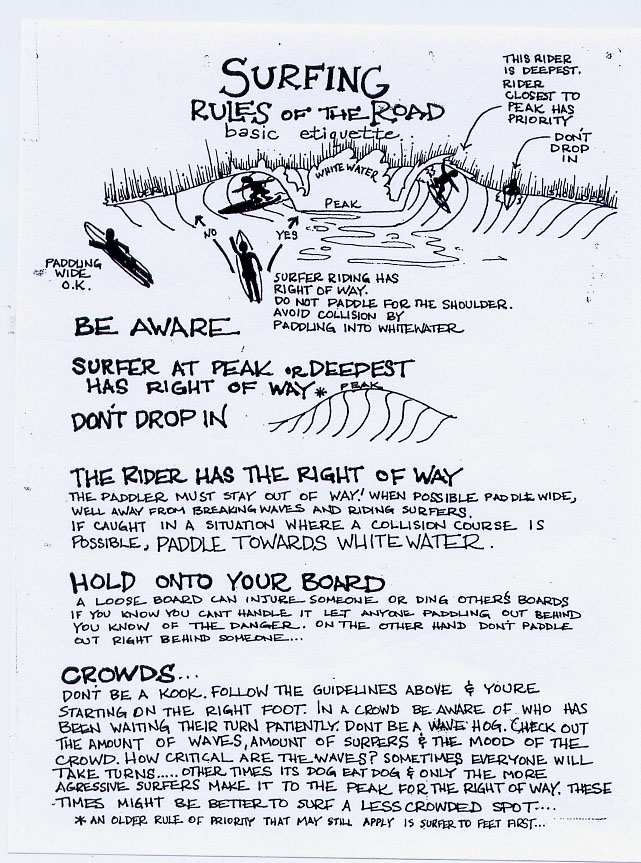 SURFING
RULES OF THE ROAD
basic etiquette
THIS RIDER
IS DEEPEST.
RIDER
CLOSEST TO
PEAK HAS
PRIORITY
DON'T
DROP
IN
WHITEWATER
SHOULDER
PEAK
NO
YES
PADDLING
WIDE
O.K.
SURFER RIDING HAS
RIGHT OF WAY.
DO NOT PADDLE FOR THE SHOULDER.
AVOID COLLISION BY
PADDLING INTO WHITEWATER
BE AWARE
SURFER AT PEAK OR DEEPEST
HAS RIGHT OF WAY*
PEAK
DON'T DROP IN
THE RIDER HAS THE RIGHT OF WAY
THE PADDLER MUST STAY OUT OF WAY! WHEN POSSIBLE PADDLE WIDE,
WELL AWAY FROM BREAKING WAVES AND RIDING SURFERS.
IF CAUGHT IN A SITUATION WHERE A COLLISION COURSE IS
POSSIBLE, PADDLE TOWARDS WHITEWATER.
HOLD ONTO YOUR BOARD
A LOOSE BOARD CAN INJURE SOMEONE OR DING OTHER'S BOARDS
IF YOU KNOW YOU CANT HANDLE IT LET ANYONE PADDLING OUT BEHIND
YOU KNOW OF THE DANGER. ON THE OTHER HAND DON'T PADDLE
OUT RIGHT BEHIND SOMEONE...
CROWDS...
DON'T BE A KOOK. FOLLOW THE GUIDELINES ABOVE & YOURE
STARTING ON THE RIGHT FOOT. IN A CROWD BE AWARE OF WHO HAS
BEEN WAITING THEIR TURN PATIENTLY. DONT BE A WAVE HOG. CHECK OUT
THE AMOUNT OF WAVES, AMOUNT OF SURFERS & THE MOOD OF THE
CROWD. HOW CRITICAL ARE THE WAVES? SOMETIMES EVERYONE WILL
TAKE TURNS..... OTHER TIMES ITS DOG EAT DOG & ONLY THE MORE
AGRESSIVE SURFERS MAKE IT TO THE PEAK FOR THE RIGHT OF WAY. THESE
TIMES MIGHT BE BETTER TO SURF A LESS CROWDED SPOT....
* AN OLDER RULE OF PRIORITY THAT MAY STILL APPLY IS SURFER TO FEET FIRST...